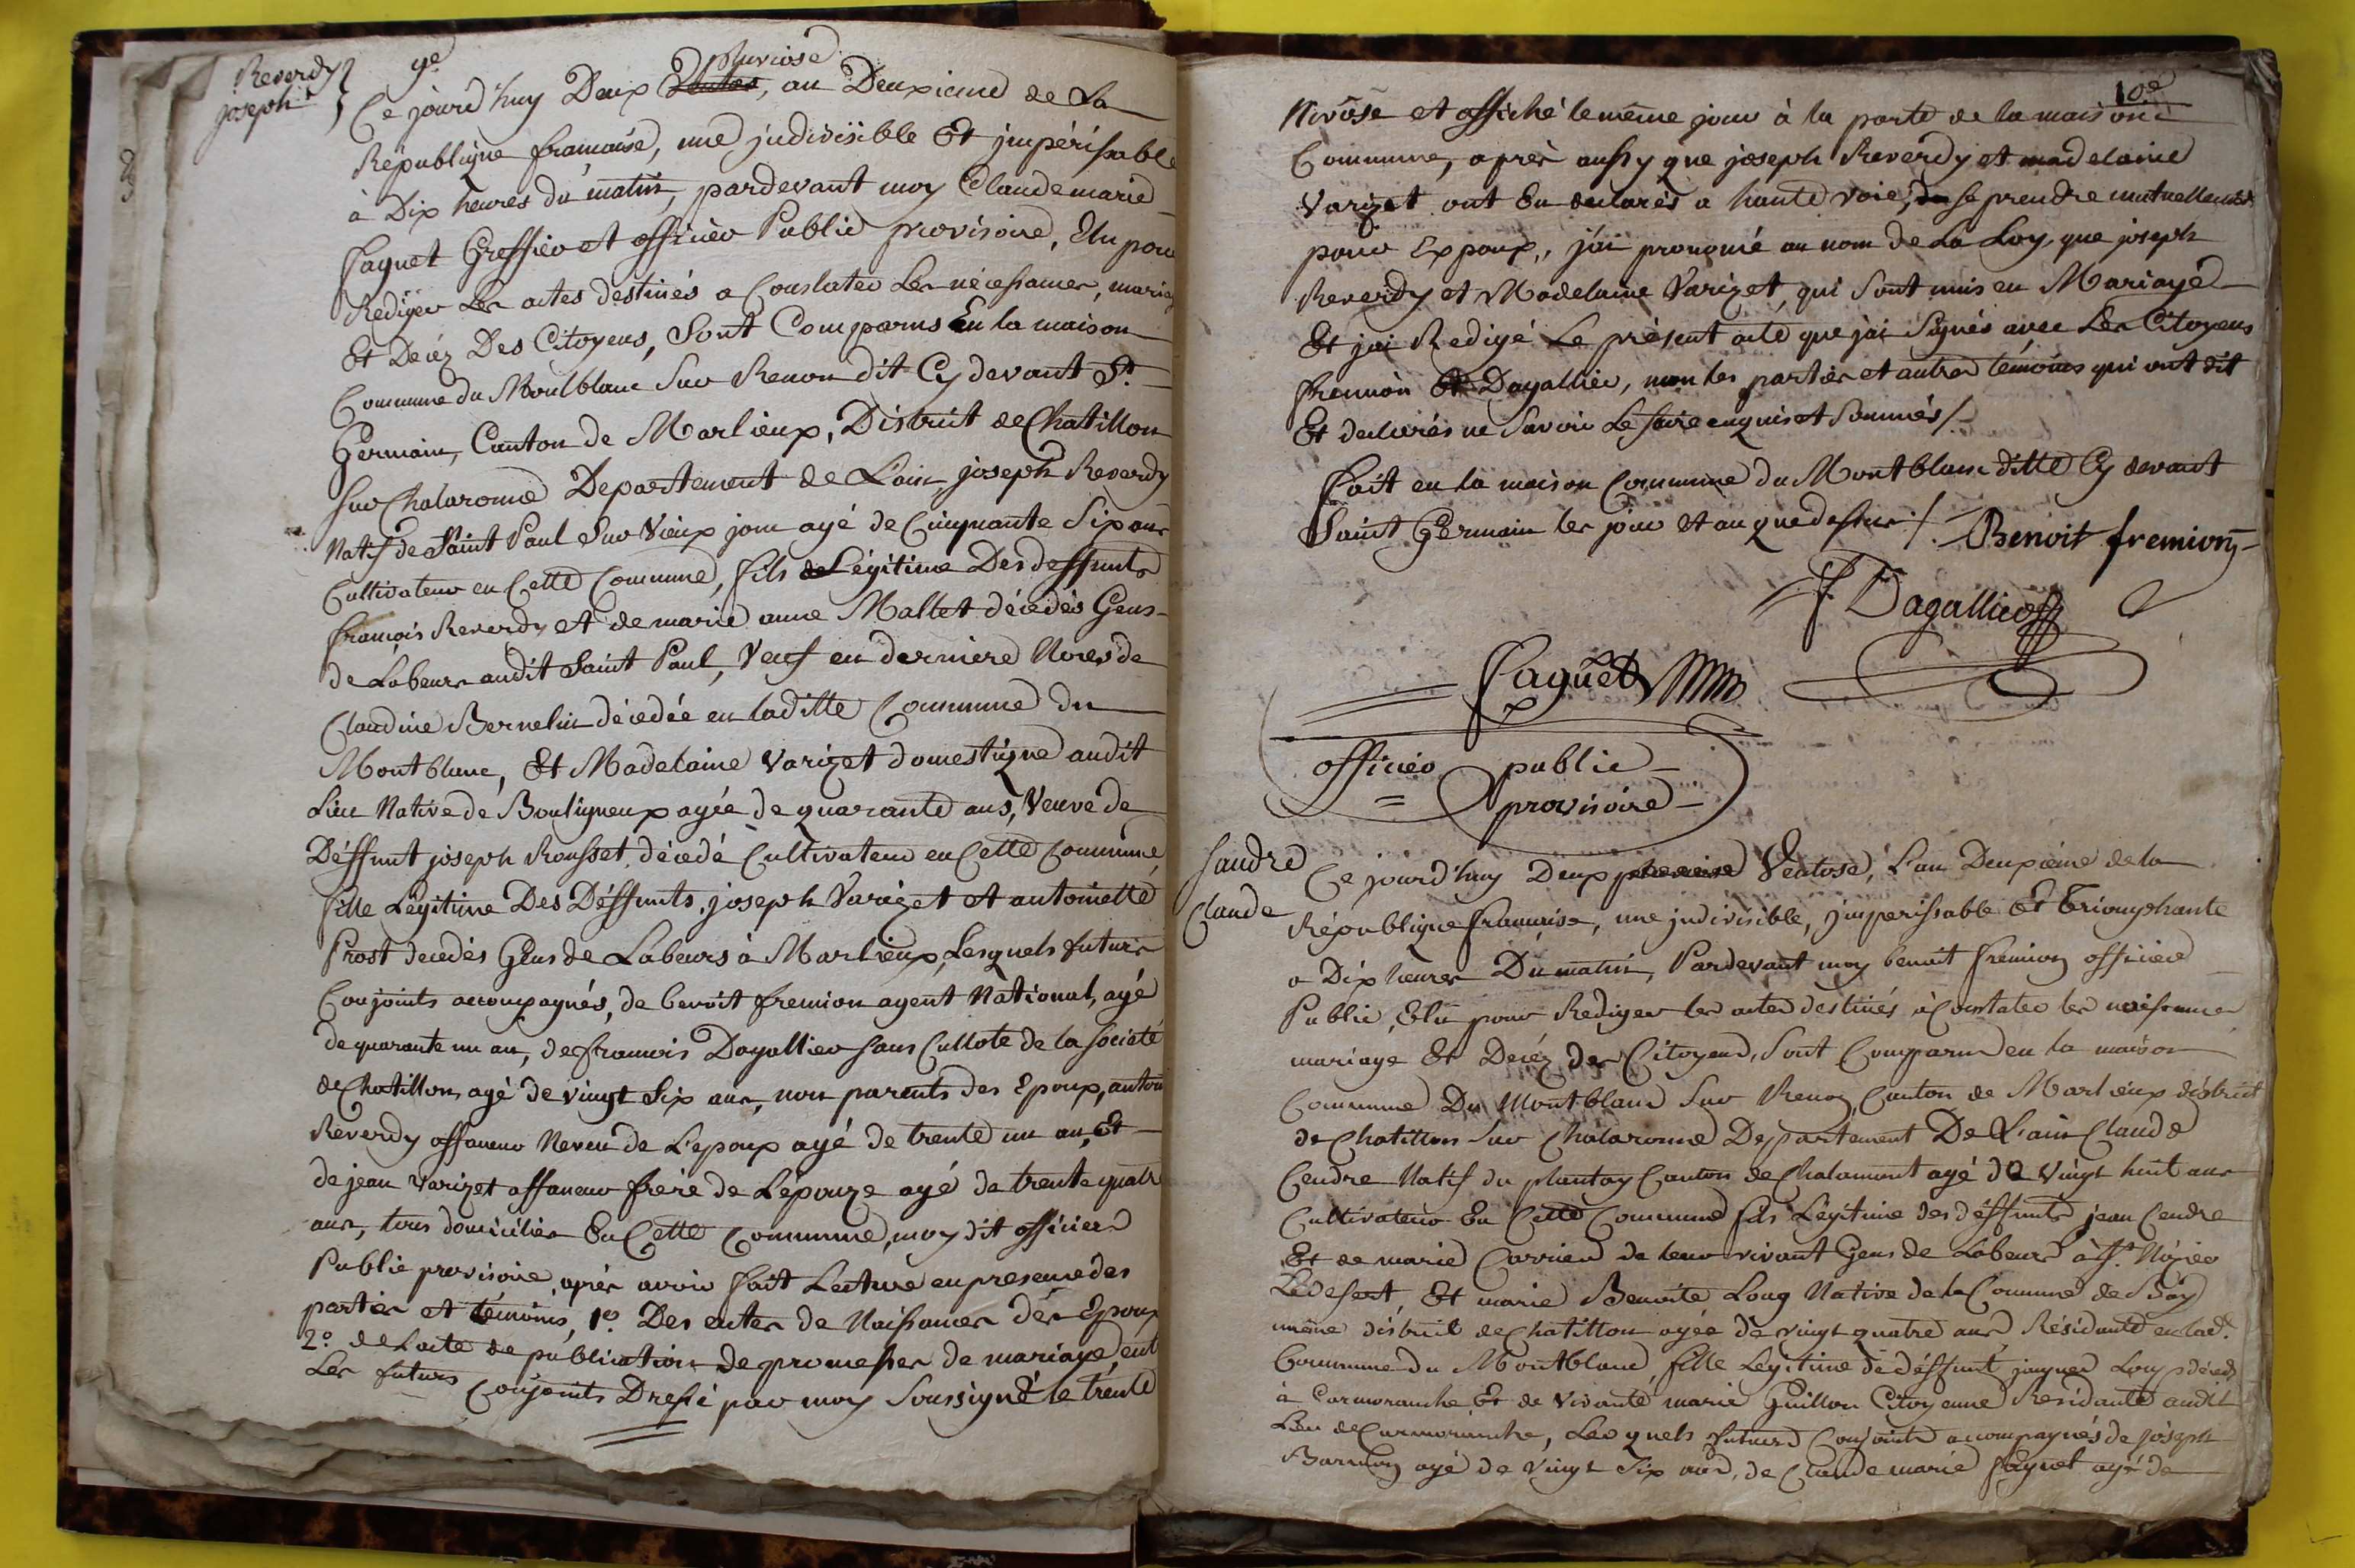 Reverdy
joseph
9e
pluviose
Ce jourd'huy Deux Ventos, an Deuxieme de La
Republique francaise, une judivisible Et jmpérissable
à Dix heures du matin, pardevant moy Claude marie
Faguet Greffier et officier Public provisoire, Elu pour
Rediger Les actes destinés a Constater Les nécessances, mariag
Et Decéz Des Citoyens, Sont Comparus En la maison
Commune du Monlblanc Sur Renon dit Cy devant St.
Germain, Canton de Marlieux, District de Chatillon
Sur Chalaronne Departement de L'ain, joseph Reverdy
Natif de Saint Paul Sur Vieux jonc agé de Cinquante Six ans
Cultivateur en Cette Commune, fils de Légitime Des deffunts
francois Reverdy et de marie anne Mallet décedés Gens
de Labeurs audit Saint Paul, Veuf en derniere Noces de
Claudine Bernelin décedée en laditte Commune du
Montblanc, Et Madelaine Varizet domestique audit
Lieu Native de Bouligneux agée de quarante ans, Veuve de
Déffunt joseph Rousset, décedé Cultivateur en Cette Commune
fille Légitime Des Déffunts, joseph Varizet et antoinette
Prost decedés Gens de Labeurs à Marlieux, Lesquels futurs
Conjoints accompagnés, de benoit fremion agent National, agé
de quarante un an, de francois Dagallier Sans Cullote de la Société
de Chatillon agé de vingt Six ans, non parents des Epoux, antoin
Reverdy affaneur Neveu de L'epoux agé de trente un an, Et
de jean Varizet affaneur frere de L'épouze agé de trente quatre
ans, tous domiciliés En Cette Commune, moy dit officier
Public provisoire, aprés avoir fait Lecture en presence des
parties et témoins, 1o. Des actes de Naissances dés Epoux
2o. de L'acte de publication de promesses de mariage, entre
Les futurs Conjoints Dressé par moy Soussigné le trente
10e
Nivôse et affiché le même jour à la porte de la maison
Commune, aprés aussy que joseph Reverdy et madelaine
Varizet ont Eu declarés a haute voie, de se prendre mutuellement
pour Expoux, j'ai prononcé au nom de La Loy, que joseph
Reverdy et Madelaine Varizet, qui Sont unis en Mariage
Et jai Redigé Le présent acte que jai Signés avec Les Citoyens
fremion Et Dagallier, non les parties et autres témoins qui ont dit
Et declarés ne Savoir Le faire enquis et Sommés /.
Fait en la maison Commune du Montblanc ditte Cy devant
Saint Germain les jour et an que dessus /.
Benoit fremion
F Dagallier
Faguet
officier public
provisoire
Sandre
Claude
Ce jourd'huy Deux Ventose, L'an Deuxiéme de la
République francaise, une judivisible, jmperissable Et triomphante
a Dix heures Du matin, Pardevant moy benoit fremion officier
Public, Elu pour Rediger les actes destinés à Constater les naissances
mariage Et Decéz des Citoyens, Sont Comparus en la maison
Commune Du Montblanc Sur Renon, Canton de Marlieux district
de Chatillon Sur Chalaronne Departement De L'ain Claude
Cendre Natif du plantay Canton de Chalamont agé de Vingt huit ans
Cultivateur En Cette Commune fils Légitime des déffunts jean Cendre
Et de marie Carrier de leur vivant Gens de Labeurs à St. Nizier
Ledesert, Et marie Benoite Loug Native de la Commune de Bey
même district de Chatillon agée de vingt quatre ans Résidante en lad.
Commune du Montblanc, fille Legitime de déffunt jaques Loup décédé
à Cormoranche Et de Vivante marie Guillon Citoyenne Residante audit
Lieu de Cormoranche, Lesquels futurs Conjoints accompagnés de joseph
agé de Vingt Six ans, de Claude marie faguet agé de